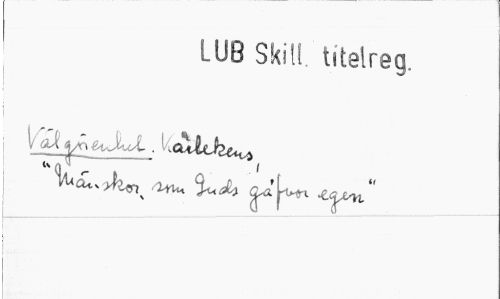 LUB Skill. titelreg.
Välgörenhet. Kärlekens,
"Mänskor, som Guds gåfvor egen"